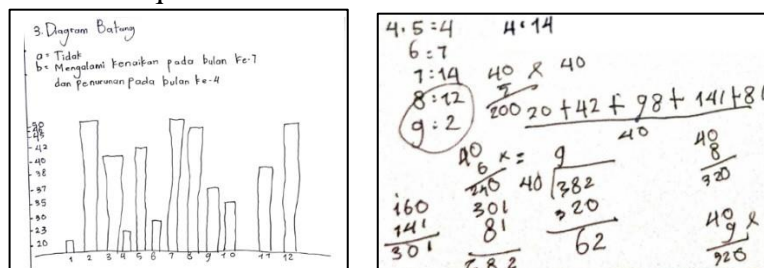 3. Diagram Batang
a = Tidak
b = Mengalami kenaikan pada bulan ke-7
dan penurunan pada bulan ke-4
42
40
38
37
35
30
23
20
1 2 3 4 5 6 7 8 9 10 11 12
4. 5 = 4
4. 14
6 = 7
7 = 14
8 = 12
9 = 2
40 x 40
200
20 + 42 + 98 + 141 + 81
40
40
6 x =
240
301
81
9
40 382
320
62
40
8
320
160
141
301
40
9 x